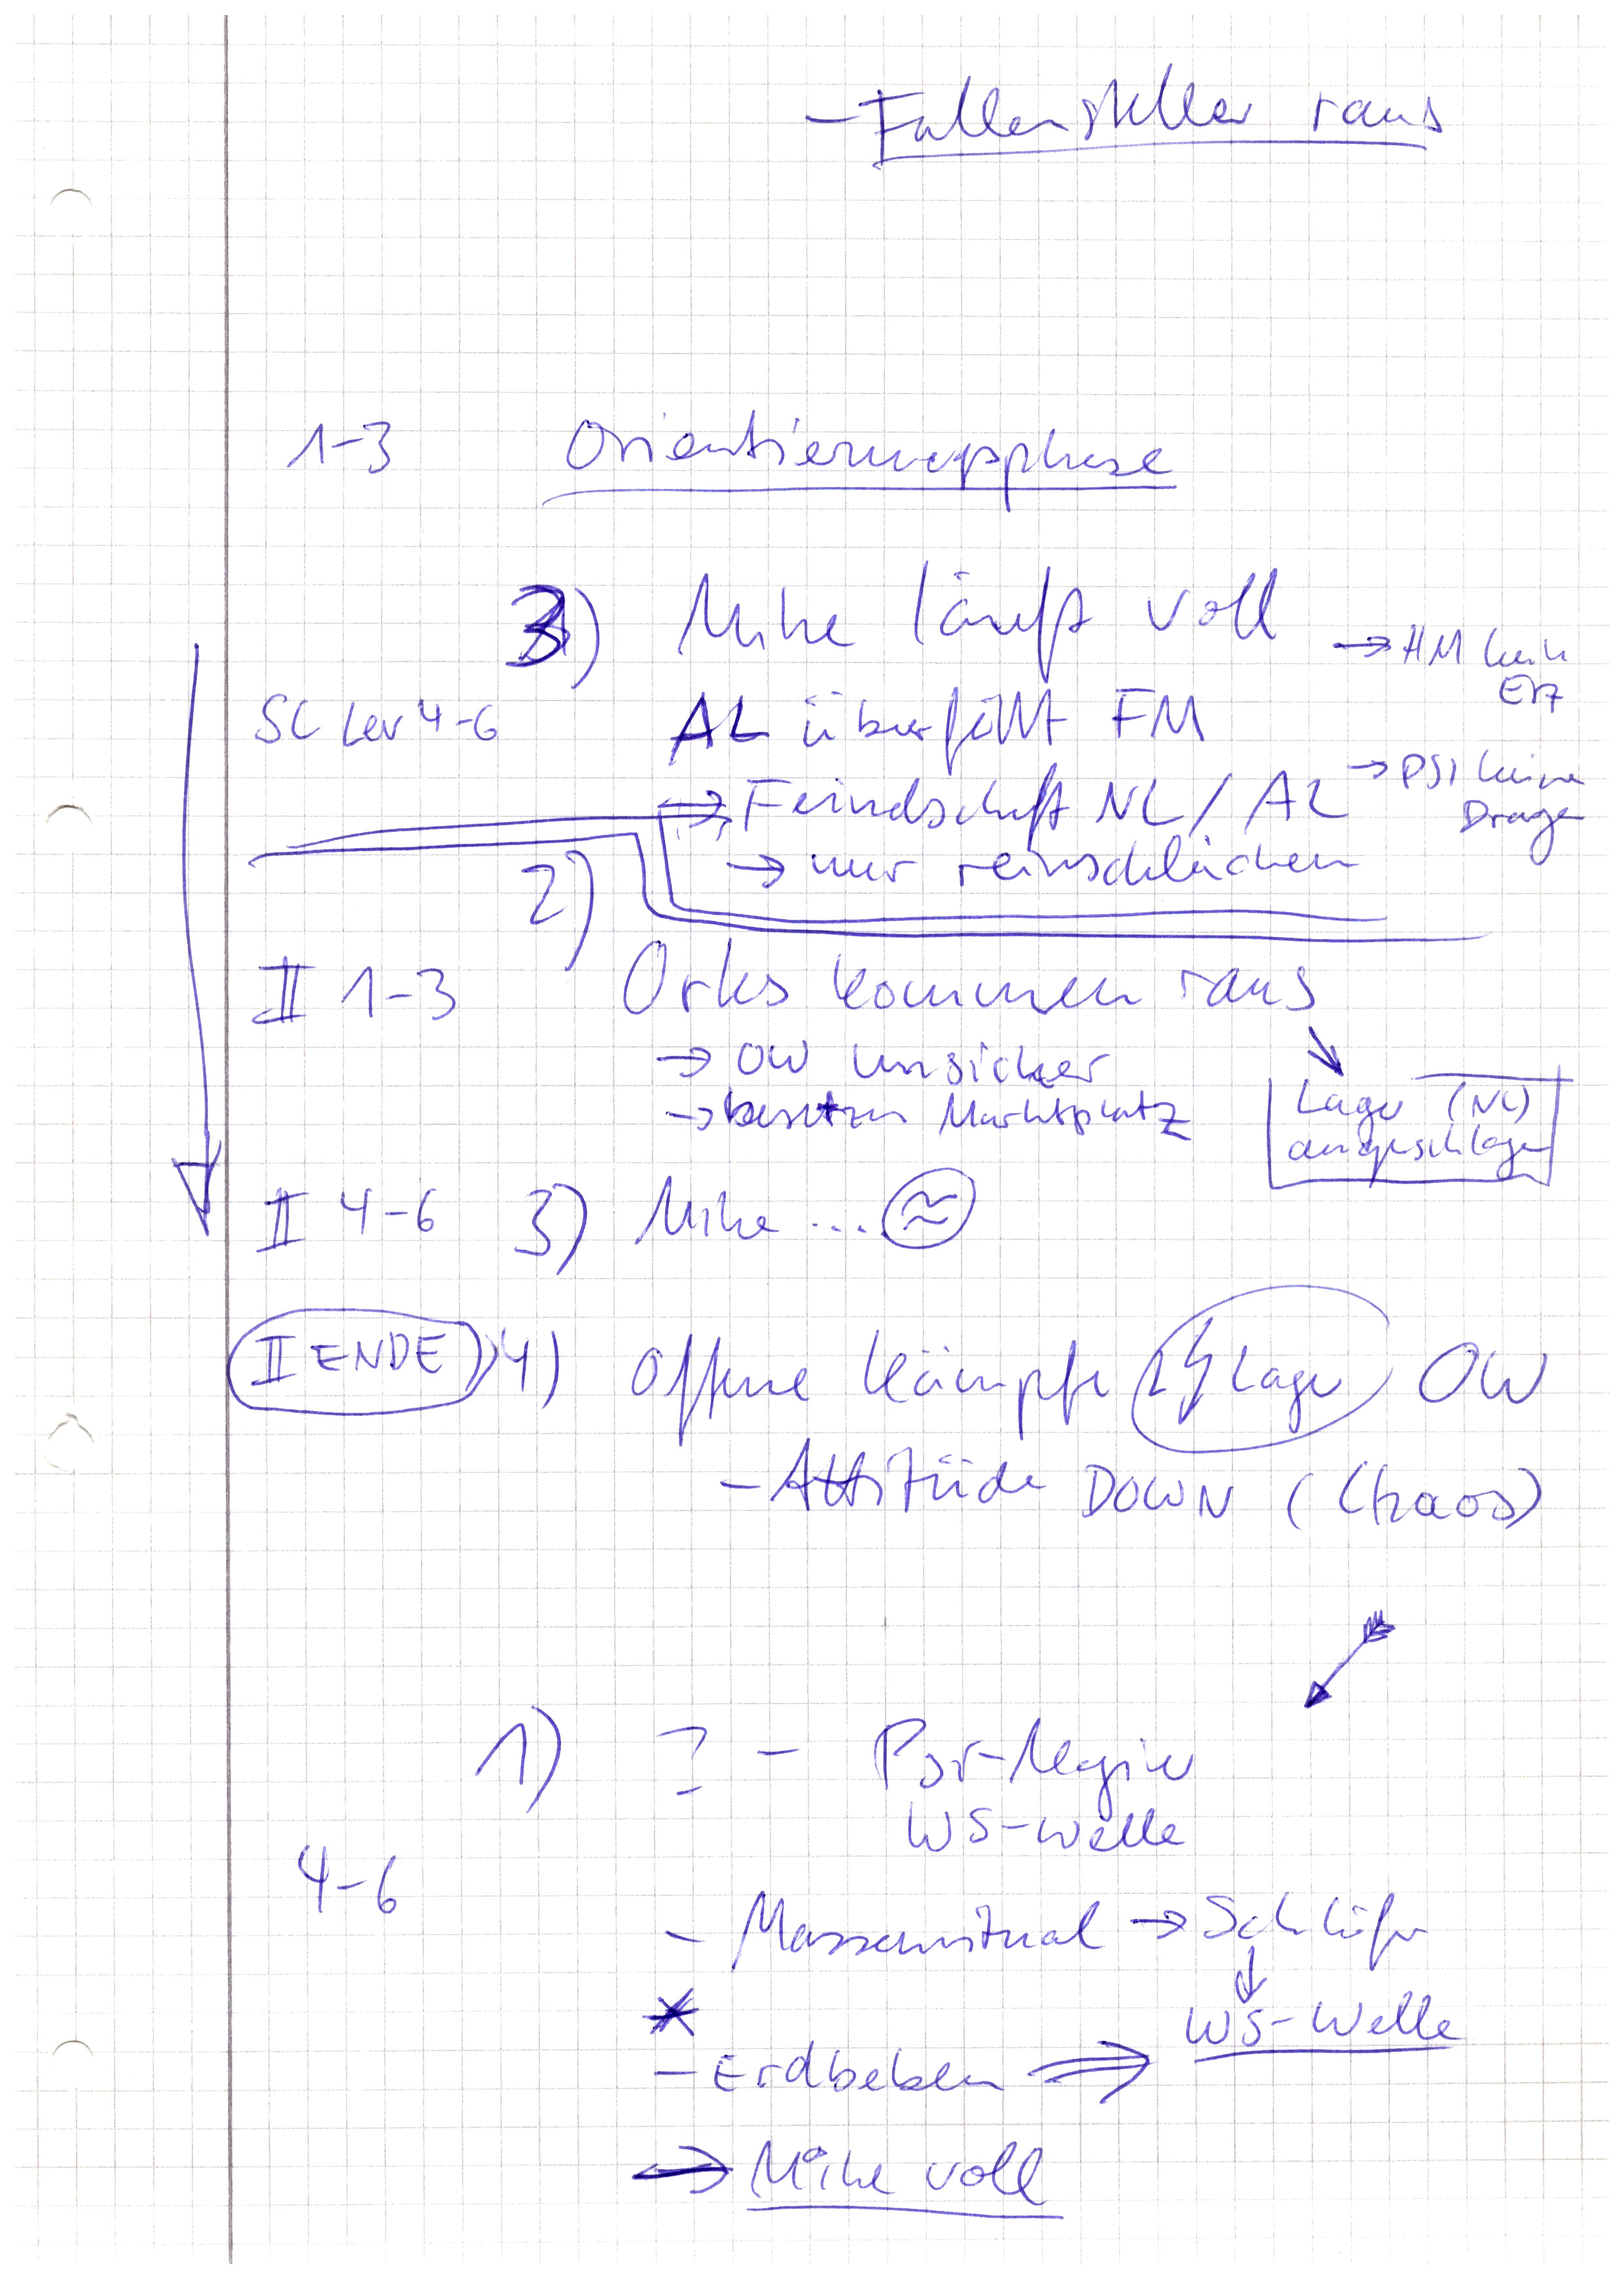 - Fallensteller raus
1-3 Orientierungsphase
3) Mine läuft voll
→ HM kein
Erz
SC Lev 4-6 AL überfällt FM
⇒ Feindschaft NL / AL
→ PSI keine
Drogen
→ nur reinschleichen
2)
II 1-3 Orks kommen raus
→ OW unsicher
→ besetzen Marktplatz
Lager (NL)
angeschlagen
II 4-6 3) Mine ... ≈
II ENDE 4) Offene Kämpfe Lager OW
- Attitüde DOWN (Chaos)
1) ? - Psi-Magier
WS-Welle
4-6
- Massenritual → Schläfer
↓
WS-Welle
- Erdbeben ⇒
⇒ Mine voll